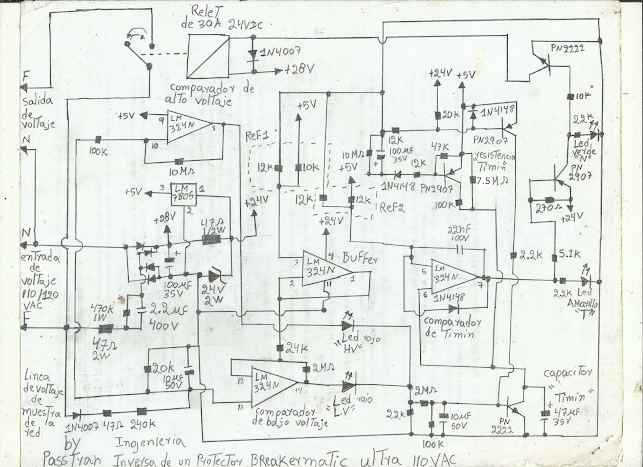 ReleT
de 30A 24VDC
1N4007
+28V
comparador de
alto voltaje
F
salida
de
voltaje
N
N
entrada
de
voltaje
110/120
VAC
F
+5V
9
LM
324N
8
10
100K
10MΩ
+5V
3
LM
7805
1
2
+28V
47Ω
1/2W
+24V
100µF
35V
24V
2W
2.2µF
400V
470K
1W
47Ω
2W
Linea
de voltaje
de
muestra
de la
red.
1N4007
47Ω
240K
20K
10µF
50V
ReF1
+5V
12K
10K
12K
+5V
12K
ReF2
+24V
BuFFey
3
LM
324N
4
1
2
11
24K
Led rojo
"HV"
12
LM
324N
14
13
2MΩ
Led rojo
"LV"
comparador
de bajo voltaje
+24V
+5V
12K
20K
1N4148
PN2907
10MΩ
100µF
35V
12K
47K
1N4148
PN2907
100K
resistencia
Timin
7.5MΩ
22nF
100V
5
LM
324N
7
6
1N4148
comparador
de Timin
2.2K
5.1K
PN2222
10K
2.2K
Led
verde
"N"
PN
2907
270Ω
+24V
2.2K
Led
AMarillo
"T"
2MΩ
2.2K
10µF
50V
100K
PN
2222
capacitor
"Timin"
47µF
35V
by Ingenieria
PassTran Inversa de un Protector BreakerMatic ultra 110VAC